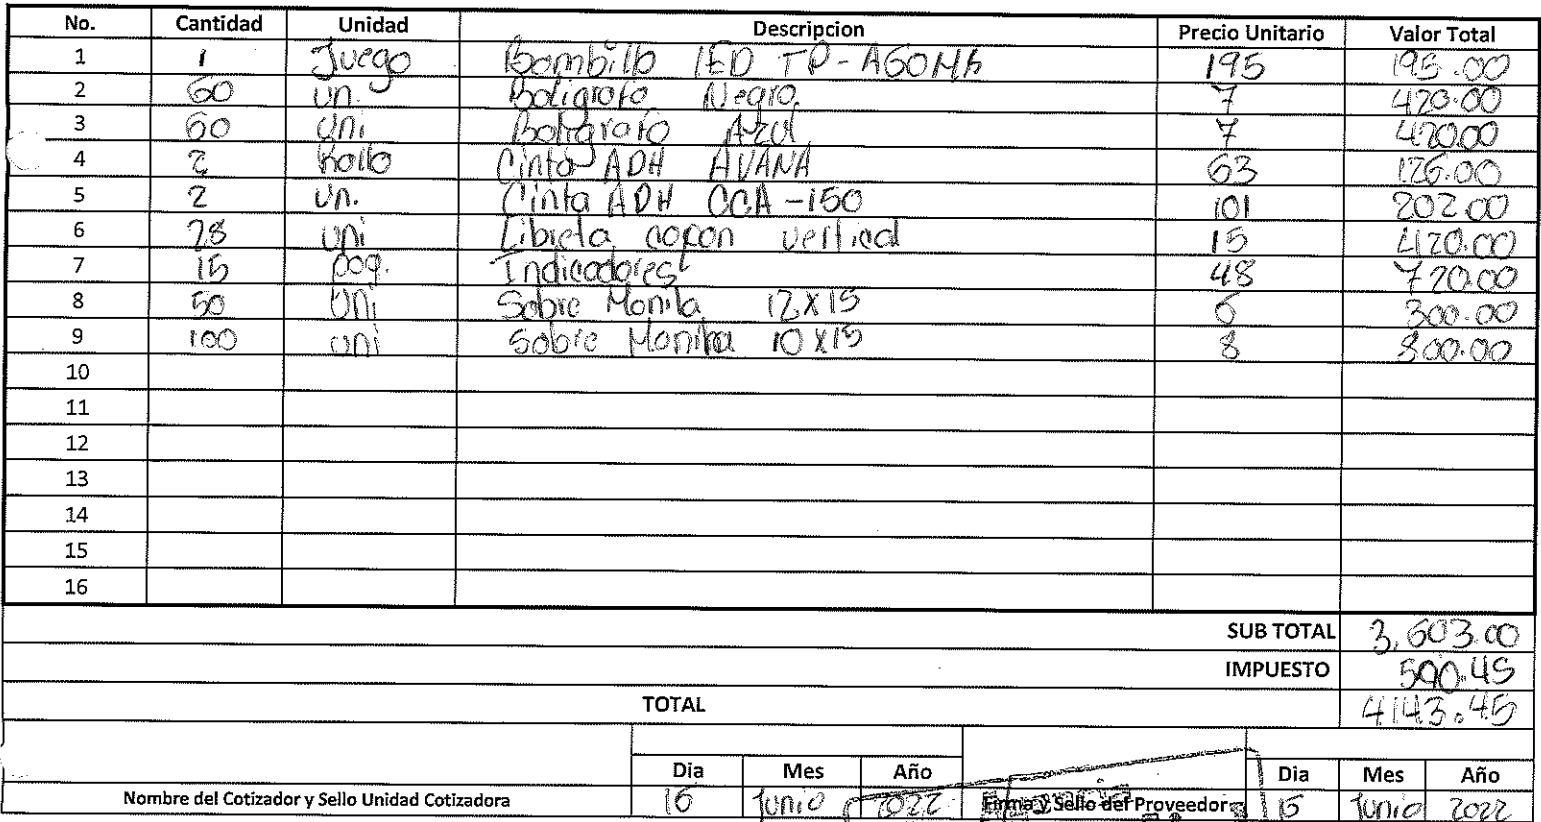 No. Cantidad Unidad Descripcion Precio Unitario Valor Total
1 1 Juego Bombillo LED TP-A60MA 195 195.00
2 60 un. Boligrafo Negro. 7 420.00
3 60 uni Boligrafo Azul 7 420.00
4 2 Rollo Cinta ADH AVANA 63 126.00
5 2 un. Cinta ADH CCA-150 101 202.00
6 28 uni Libreta copon vertical 15 420.00
7 15 paq. Indicadores 48 720.00
8 50 uni Sobre Monila 12x15 6 300.00
9 100 uni Sobre Manila 10x15 8 800.00
10
11
12
13
14
15
16
SUB TOTAL 3,603.00
IMPUESTO 540.45
TOTAL 4143.45
Dia Mes Año Dia Mes Año
Nombre del Cotizador y Sello Unidad Cotizadora 15 Junio 2022 Firma y Sello del Proveedor 15 Junio 2022